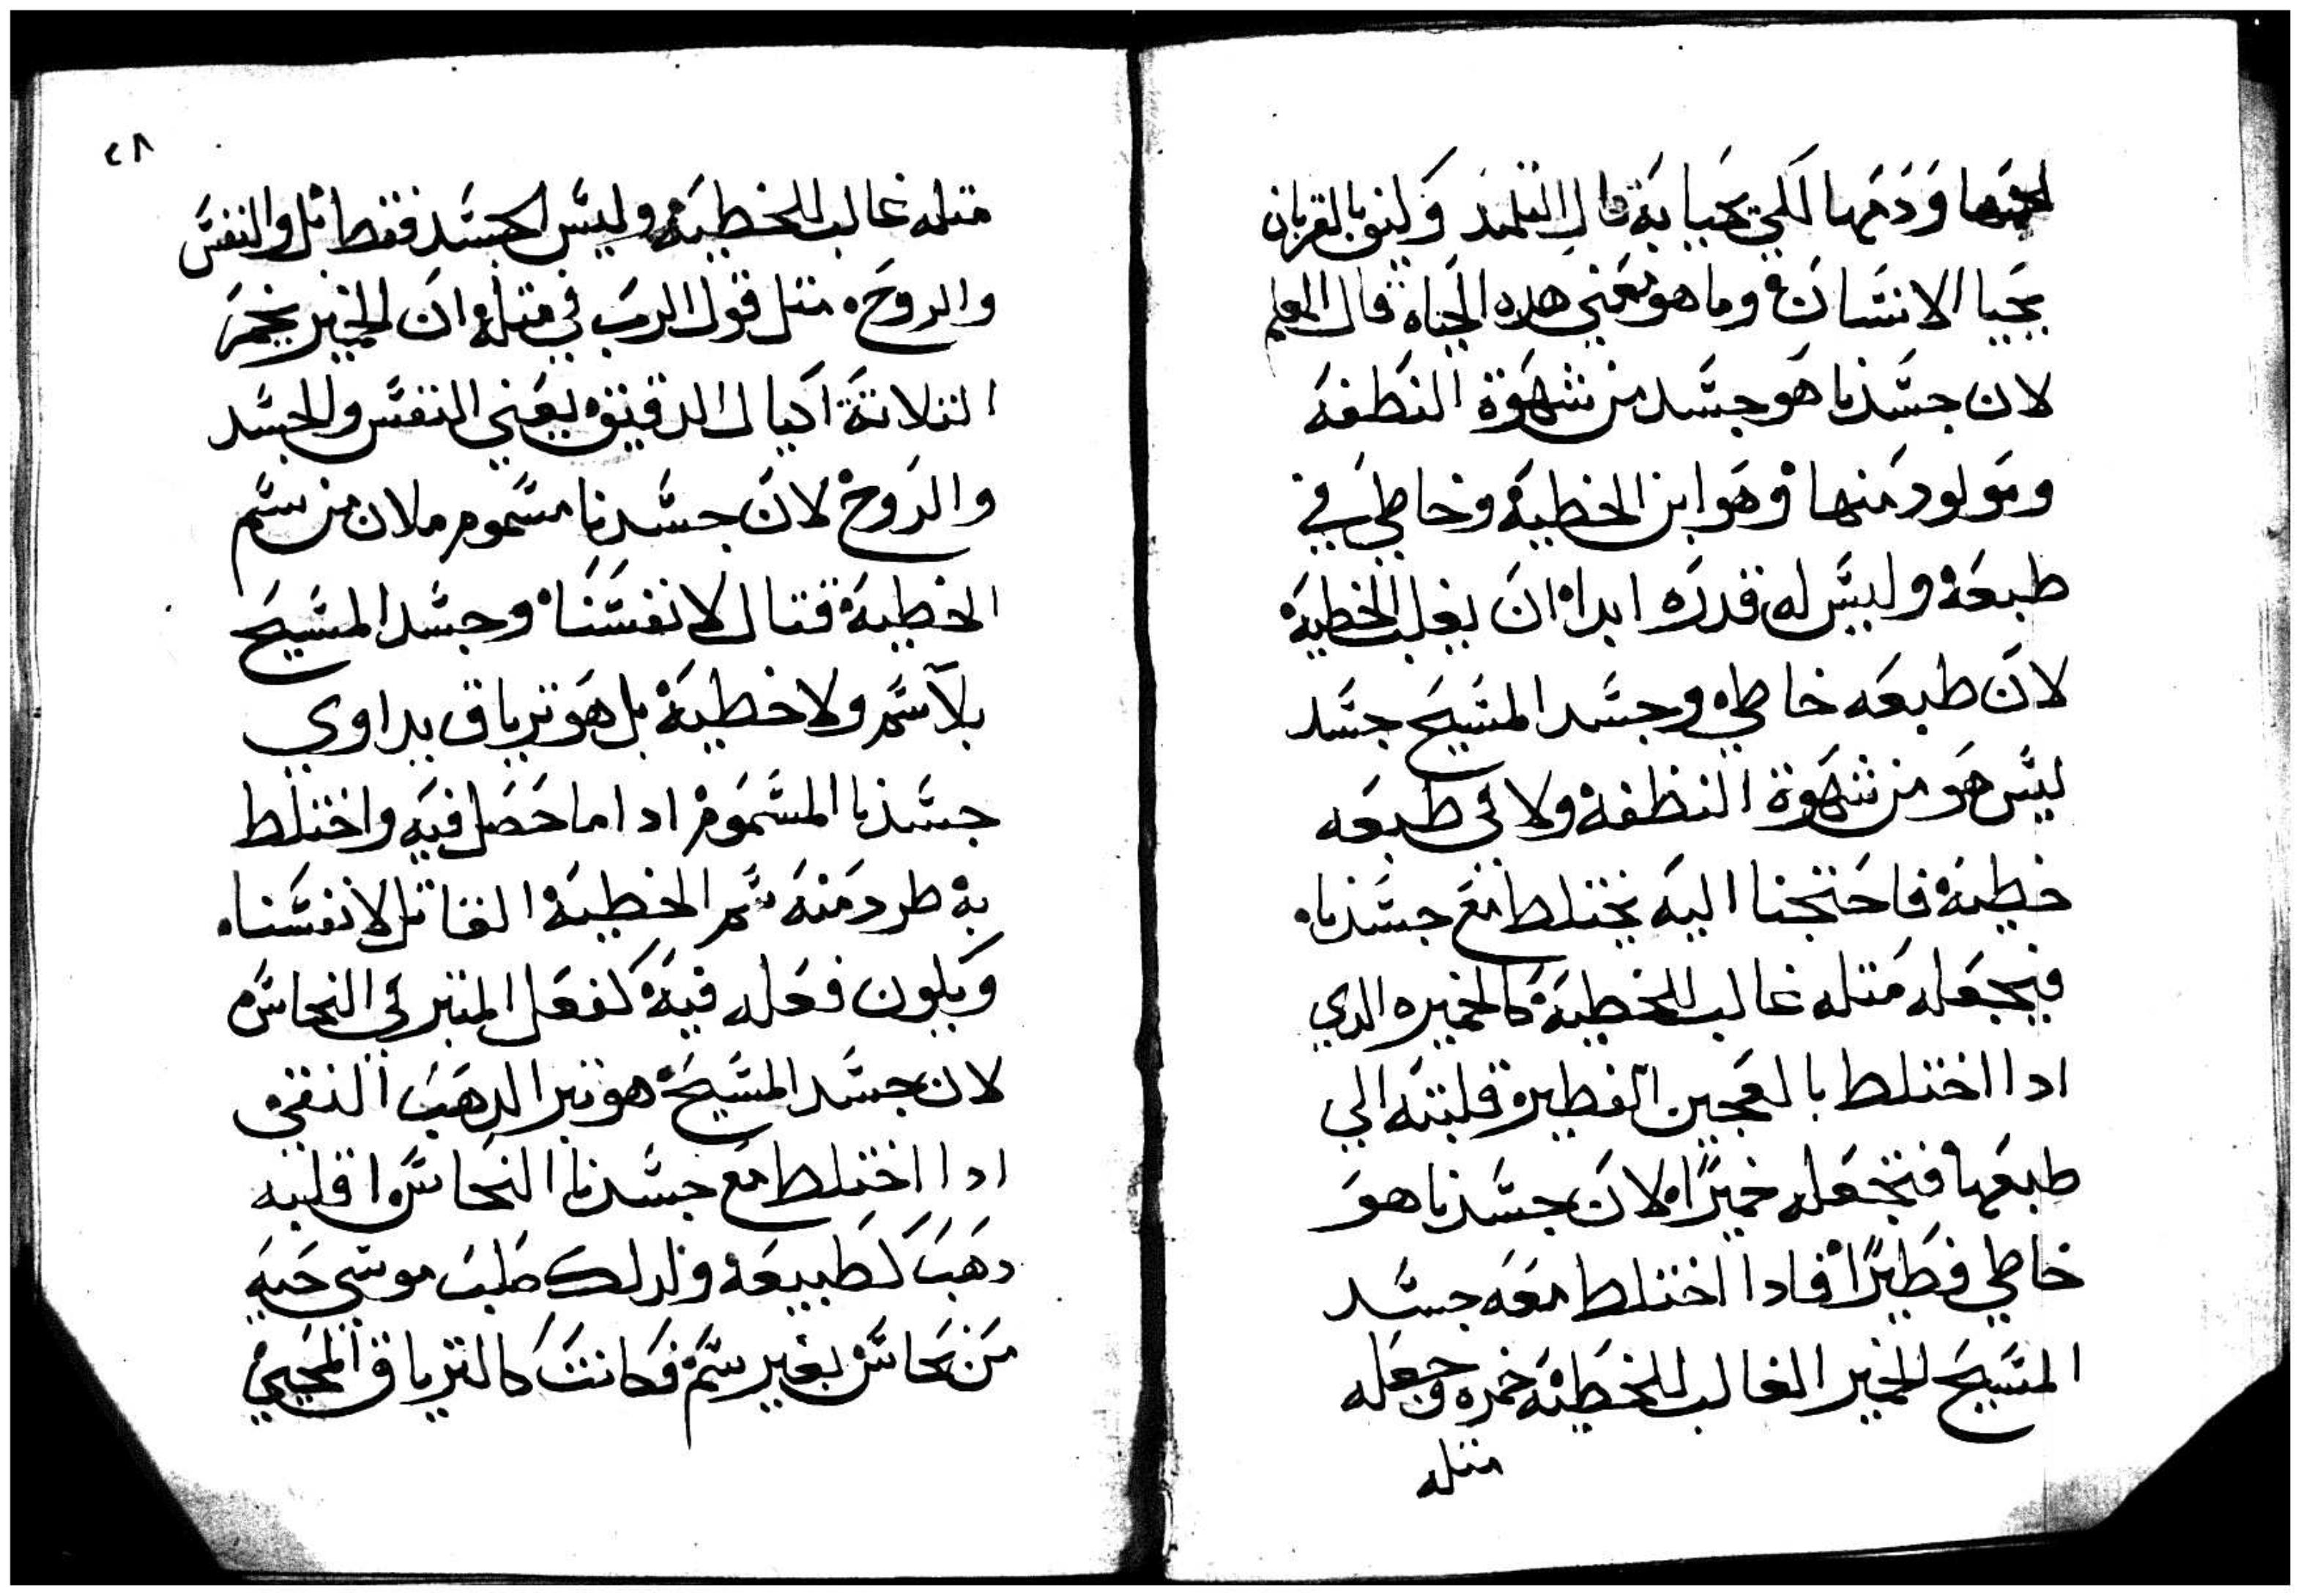 لحمها ودمها لكي يحيا به قال التلميد وكيف بالقربان
يحيا الانسان وما هو يعني هده الحياة قال المعلم
لان جسدنا هو جسد من شهوة النطفه
ومولود منها وهو ابن الخطية وخاطي في
طبعه وليس له قدره ابدا ان يغلب الخطية
لان طبعه خاطي وجسد المسيح جسد
ليس هو من شهوة النطفه ولا في طبعه
خطية فاحتجنا اليه يختلط مع جسدنا
فيجعله متله غالب للخطية كالخميره الدي
ادا اختلط بالعجين الفطيرة قلبته الي
طبعها فتجعله خميرًا لان جسدنا هو
خاطي فطيرًا فادا اختلط معه جسد
المسيح الخمير الغالب للخطية خمره وجعله
متله
٢٨
متله غالب للخطية وليس الجسد فقط بل والنفس
والروح متل قول الرب في متله ان الخمير يخمر
التلاتة اكيال الدقيق يعني النفس والجسد
والروح لان جسدنا مسموم ملان من سم
الخطية قتال لانفسنا وجسد المسيح
بلا سم ولا خطية بل هو ترياق يداوي
جسدنا المسموم ادا ما حصل فيه واختلط
به طرد منه سم الخطية القاتل لانفسنا
ويكون فعله فيه كفعل المتبر في النحاس
لان جسد المسيح هو تبر الدهب النقي
ادا اختلط مع جسدنا النحاس اقلبه
دهب كطبيعة ولدلك طلب موسي حيه
من نحاس بغير سم فكانت كالترياق المحيي